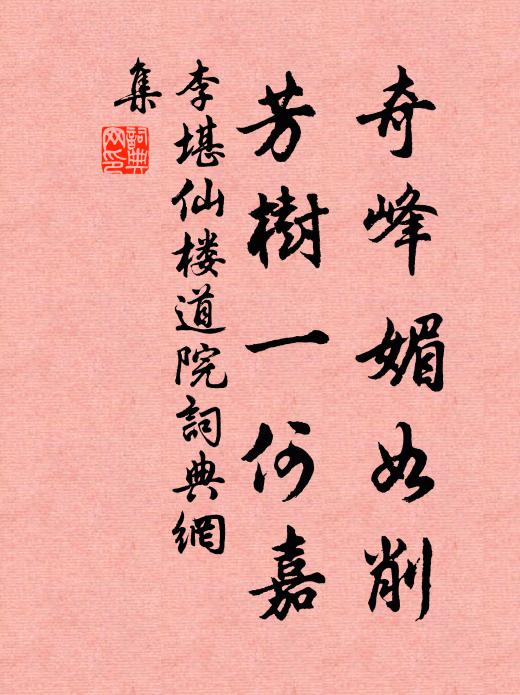 奇峰媚如削
芳樹一何嘉
李堪仙楼道院詞典網
集
詞典网印